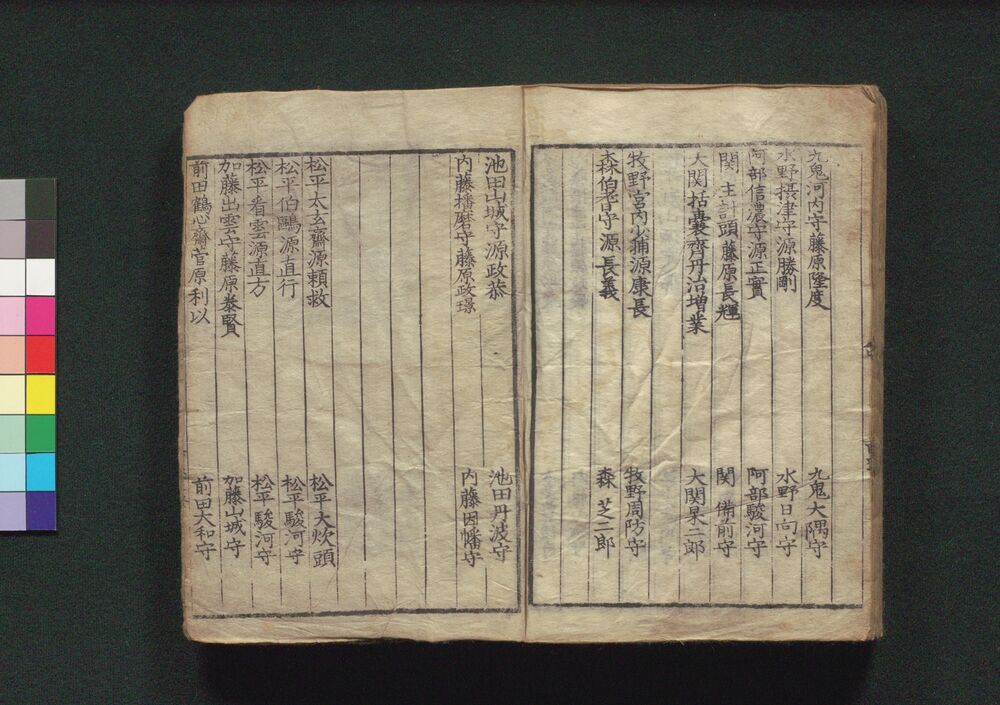 九鬼河内守藤原隆度 九鬼大隅守
水野摂津守源勝剛 水野日向守
阿部信濃守源正實 阿部駿河守
関主計頭藤原長輝 関備前守
大関括嚢齊丹治増業 大関杲二郎
牧野宮内少輔源康長 牧野周防守
森伯耆守源長義 森芝二郎
池田山城守源政恭 池田丹波守
内藤播磨守藤原政璟 内藤因幡守
松平太玄齋源頼救 松平大炊頭
松平伯鷗源直行 松平駿河守
松平看雲源直方 松平駿河守
加藤出雲守藤原泰賢 加藤山城守
前田鶴心齋菅原利以 前田大和守